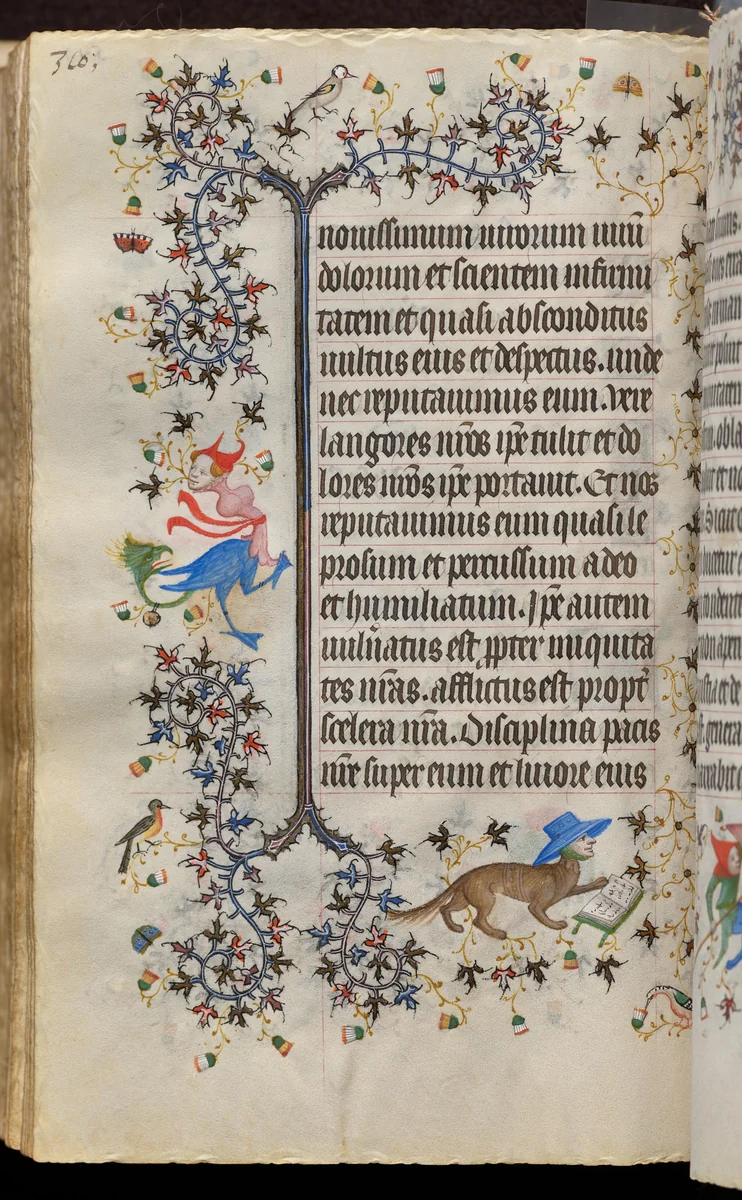 360;
nouissimum uirorum uirū
dolorum et scientem infirmi
tatem et quasi absconditus
uultus eius et despectus. unde
nec reputauimus eum. vere
langores nr̄os ip̄e tulit et do
lores nr̄os ip̄e portauit. Et nos
reputauimus eum quasi le
prosum et percussum a deo
et humiliatum. Ip̄e autem
uuln̄atus est ꝓpter iniquita
tes nr̄as. afflictus est propt̄
scelera nr̄a. Disciplina pacis
nr̄e super eum et liuore eius